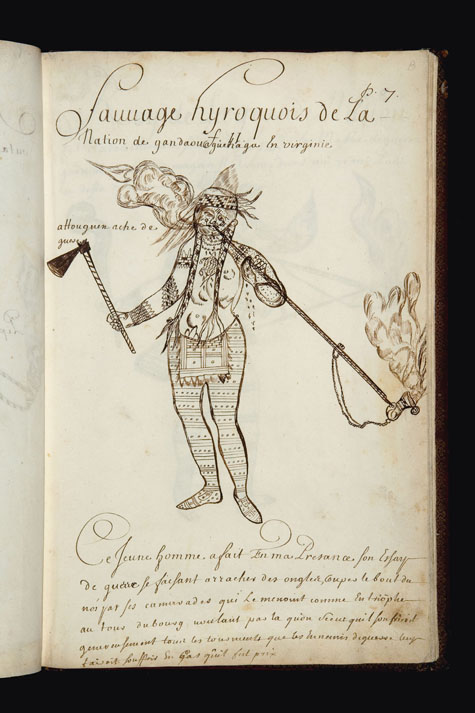 p. 7.
Sauuage hyroquois de La
Nation de gandaouagüehaga En virginie
attouguen ache de
guerre
Ce Jeune homme a fait En ma Presance son Essay
de guerre se faisant arracher des ongles, coupes le bout du
nois par ses camarades qui Le menoint comme En triophe
au tour du bourg voulant par la qu'on sceut quil souffriroit
genereusement tous les tourments que les
fairoit souffrir En Cas qu'il fut pris